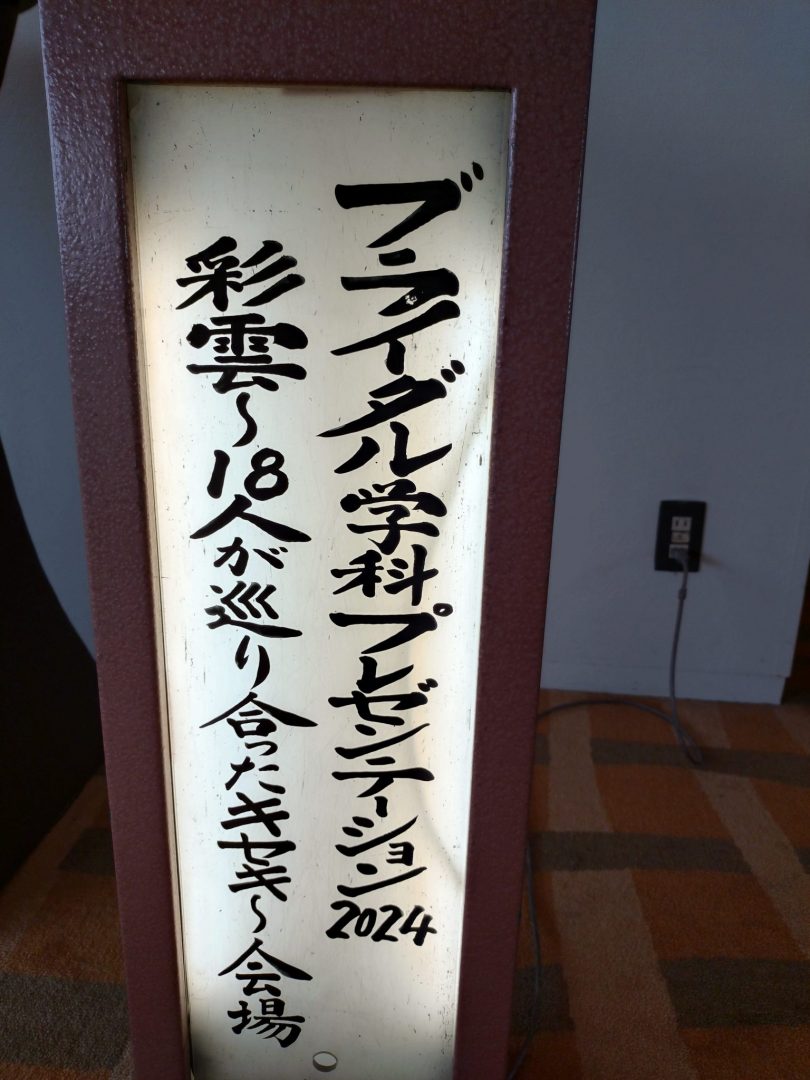 ブライダル学科プレゼンテーション2024
彩雲～18人が巡り合ったキセキ～会場